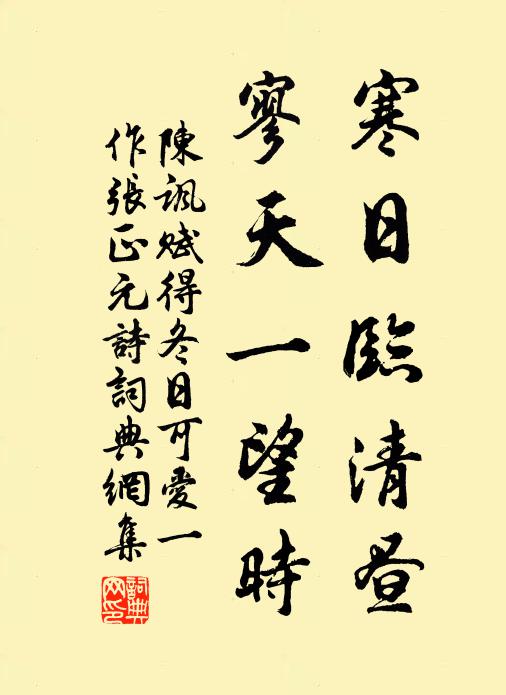 寒日臨清晝
寥天一望時
陳諷賦得冬日可愛一
作張正元詩詞典網集
詞典網印